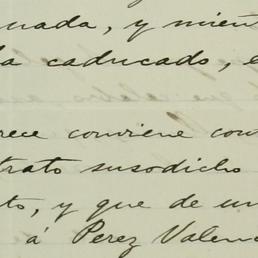 nada, y mient
la caducado, e
rece conviene con
trato susodicho
to, y que de un
á Perez Valen